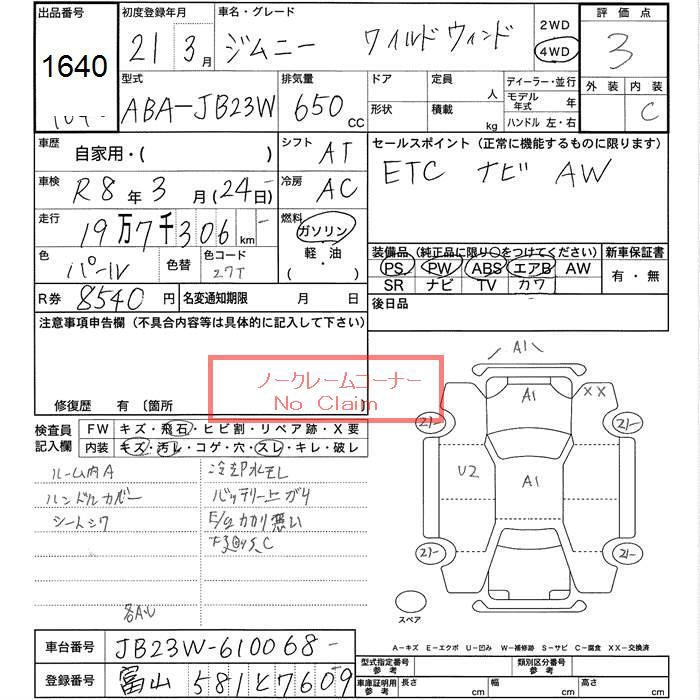 出品番号 初度登録年月 車名・グレード 2WD 評価点
1640 21年 3月 ジムニー ワイルドウィンド 4WD 3
型式 排気量 ドア 定員 ディーラー・並行 外装 内装
ABA-JB23W 650 CC 形状 積載 人 kg モデル年式 年 ハンドル 左・右 C
車歴 自家用・( ) シフト AT セールスポイント(正常に機能するものに限ります)
車検 R8年3月(24日) 冷房 AC ETC ナビ AW
走行 19万7千306km 燃料 ガソリン・軽・油・( )
色 パール 色替 色コード Z7T
装備品(純正品に限り○をつけてください) 新車保証書
PS PW ABS エアB AW 有・無
SR ナビ TV カワ
R券 8540円 名変通知期限 月 日 後日品
注意事項申告欄(不具合内容等は具体的に記入して下さい)
ノークレームコーナー
No Claim
修復歴 有 〔箇所
検査員記入欄 FW キズ・飛石・ヒビ割・リペア跡・X要
内装 キズ・汚レ・コゲ・穴・スレ・キレ・破レ
ルーム内A 冷却水モレ
ハンドルカバー バッテリー上ガリ
シートシワ E/gカカリ悪い
各AU
A1
A1 XX
21- 21-
U2 A1
21- 21-
スペア
A-キズ E-エクボ U-凹み W-補修跡 S-サビ C-腐食 XX-交換済
車台番号 JB23W-610068-
型式指定番号 参考 類別区分番号 参考
登録番号 富山 581 と 7609
車庫証明用 参考 長さ cm 幅 cm 高さ cm